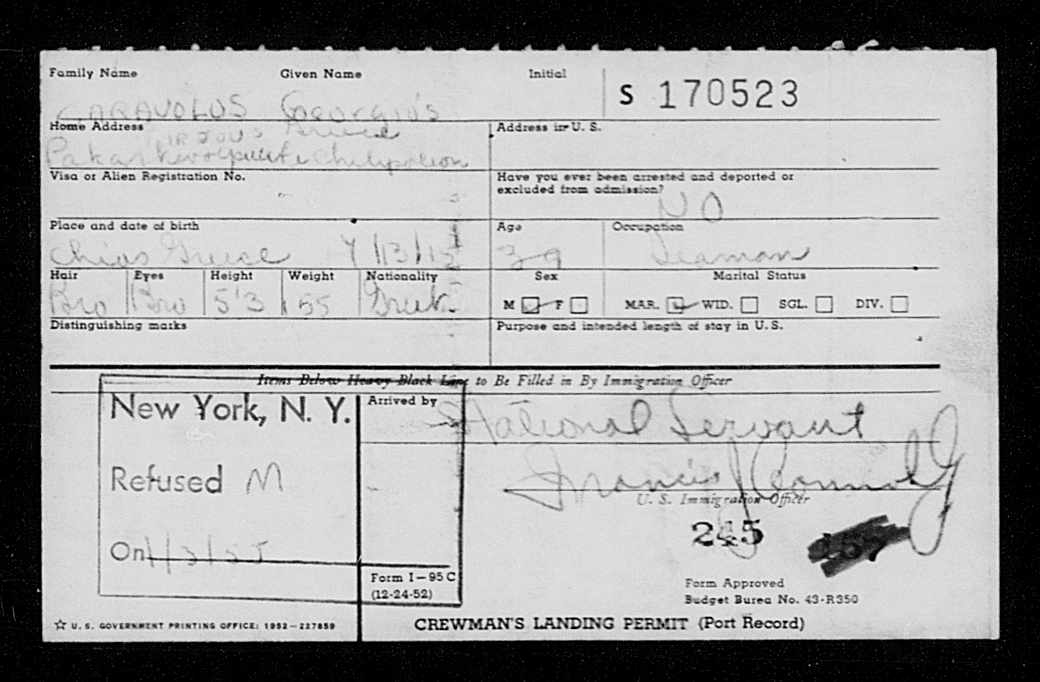 Family Name Given Name Initial
S 170523
CARAVOLOS Georgios
Home Address Address in U. S.
Greece
Visa or Alien Registration No. Have you ever been arrested and deported or
excluded from admission?
NO
Place and date of birth Age Occupation
Chios Greece 7/13/15 39 Seaman
Hair Eyes Height Weight Nationality Sex Marital Status
Bro Bro 5'3 155 Greek M F MAR. WID. SGL. DIV.
Distinguishing marks Purpose and intended length of stay in U. S.
Items Below Heavy Black Line to Be Filled in By Immigration Officer
New York, N. Y. Arrived by National Servant
Refused M
Francis J Connolly
U. S. Immigration Officer
245
On 1/3/55
Form I-95 C
(12-24-52)
Form Approved
Budget Burea No. 43-R350
☆ U. S. GOVERNMENT PRINTING OFFICE: 1952-227859 CREWMAN'S LANDING PERMIT (Port Record)